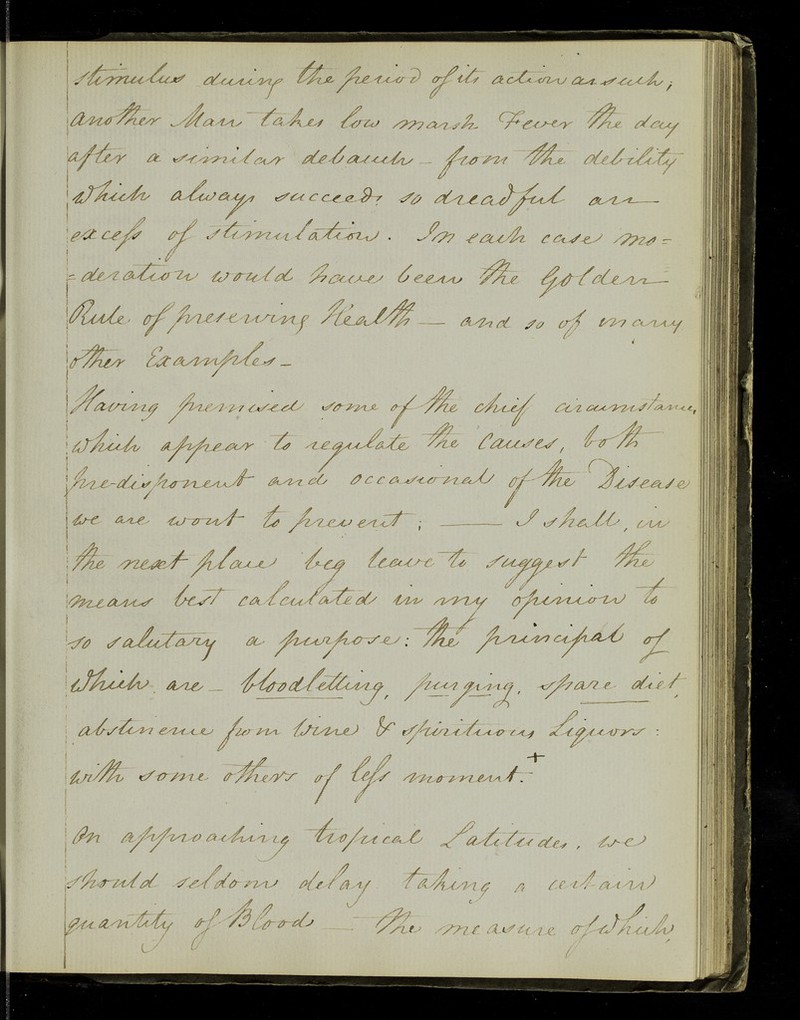 stimulus during the period of its action as such;
another Man takes low marsh Fever the day
after a similar debauch - from the debility
which always succeeds so dreadful an
excefs of stimulation. In each case mo=
=deration would have been the Golden
Rule of preserving Health — and so of many
other Examples -
Having premised some of the chief circumstances
which appear to regulate the Causes, both
pre-disponent and occasional of the Disease
we are wont to prevent; — I shall, in
the next place beg leave to suggest the
means best calculated in my opinion to
so salutary a purpose: the principal of
which are - bloodletting, purging, spare diet,
abstinence from Wine & spirituous Liquors:
with some others of lefs moment.+
On approaching tropical Latitudes, we
should seldom delay taking a certain
quantity of Blood — the measure of which,